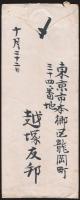 東京市本郷区龍岡町
三十四番地
越塚友邦
十月三十二日